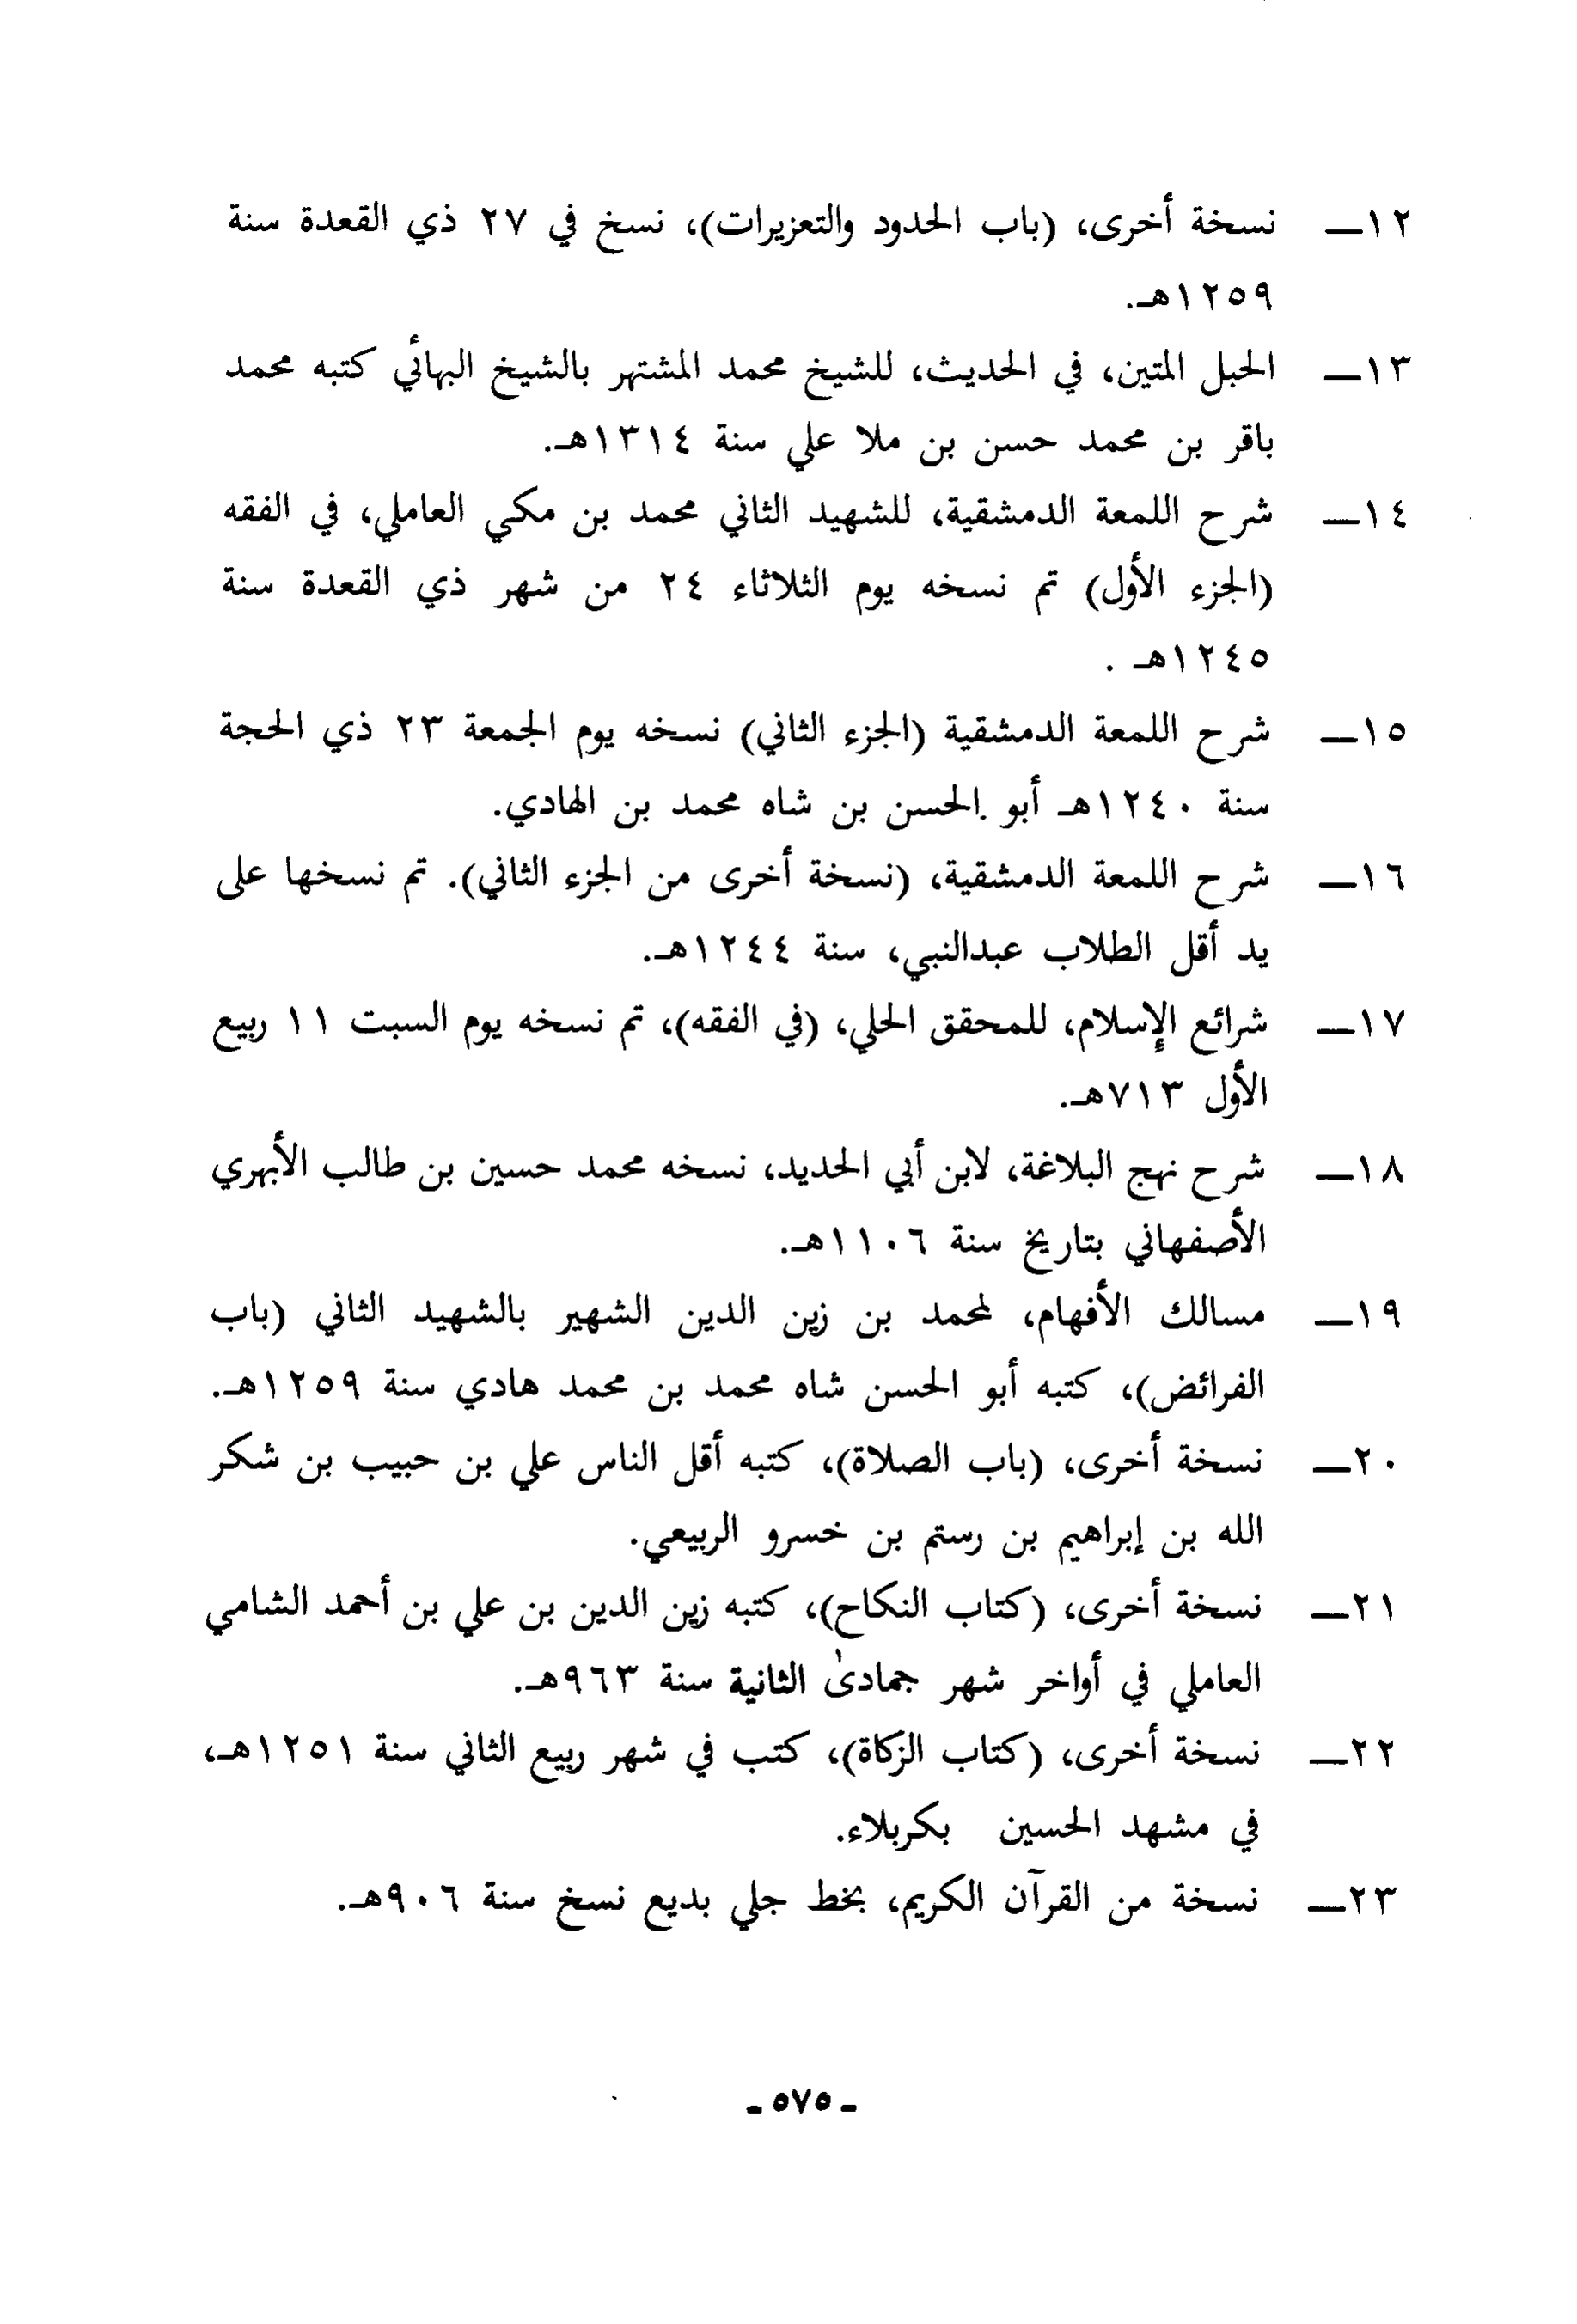 ١٢ــ نسخة أخرى، (باب الحدود والتعزيرات)، نسخ في ٢٧ ذي القعدة سنة
١٢٥٩هـ.
١٣ــ الحبل المتين، في الحديث، للشيخ محمد المشتهر بالشيخ البهائي كتبه محمد
باقر بن محمد حسن بن ملا علي سنة ١٣١٤هـ.
١٤ــ شرح اللمعة الدمشقية، للشهيد الثاني محمد بن مكي العاملي، في الفقه
(الجزء الأول) تم نسخه يوم الثلاثاء ٢٤ من شهر ذي القعدة سنة
١٢٤٥هـ .
١٥ــ شرح اللمعة الدمشقية (الجزء الثاني) نسخه يوم الجمعة ٢٣ ذي الحجة
سنة ١٢٤٠هـ أبو الحسن بن شاه محمد بن الهادي.
١٦ــ شرح اللمعة الدمشقية، (نسخة أخرى من الجزء الثاني). تم نسخها على
يد أقل الطلاب عبدالنبي، سنة ١٢٤٤هـ.
١٧ــ شرائع الإسلام، للمحقق الحلي، (في الفقه)، تم نسخه يوم السبت ١١ ربيع
الأول ٧١٣هـ.
١٨ــ شرح نهج البلاغة، لابن أبي الحديد، نسخه محمد حسين بن طالب الأبهري
الأصفهاني بتاريخ سنة ١١٠٦هـ.
١٩ــ مسالك الأفهام، لمحمد بن زين الدين الشهير بالشهيد الثاني (باب
الفرائض)، كتبه أبو الحسن شاه محمد بن محمد هادي سنة ١٢٥٩هـ.
٢٠ــ نسخة أخرى، (باب الصلاة)، كتبه أقل الناس علي بن حبيب بن شكر
الله بن إبراهيم بن رستم بن خسرو الربيعي.
٢١ــ نسخة أخرى، (كتاب النكاح)، كتبه زين الدين بن علي بن أحمد الشامي
العاملي في أواخر شهر جمادىٰ الثانية سنة ٩٦٣هـ.
٢٢ــ نسخة أخرى، (كتاب الزكاة)، كتب في شهر ربيع الثاني سنة ١٢٥١هـ،
في مشهد الحسين بكربلاء.
٢٣ــ نسخة من القرآن الكريم، بخط جلي بديع نسخ سنة ٩٠٦هـ.
ـ ٥٧٥ ـ